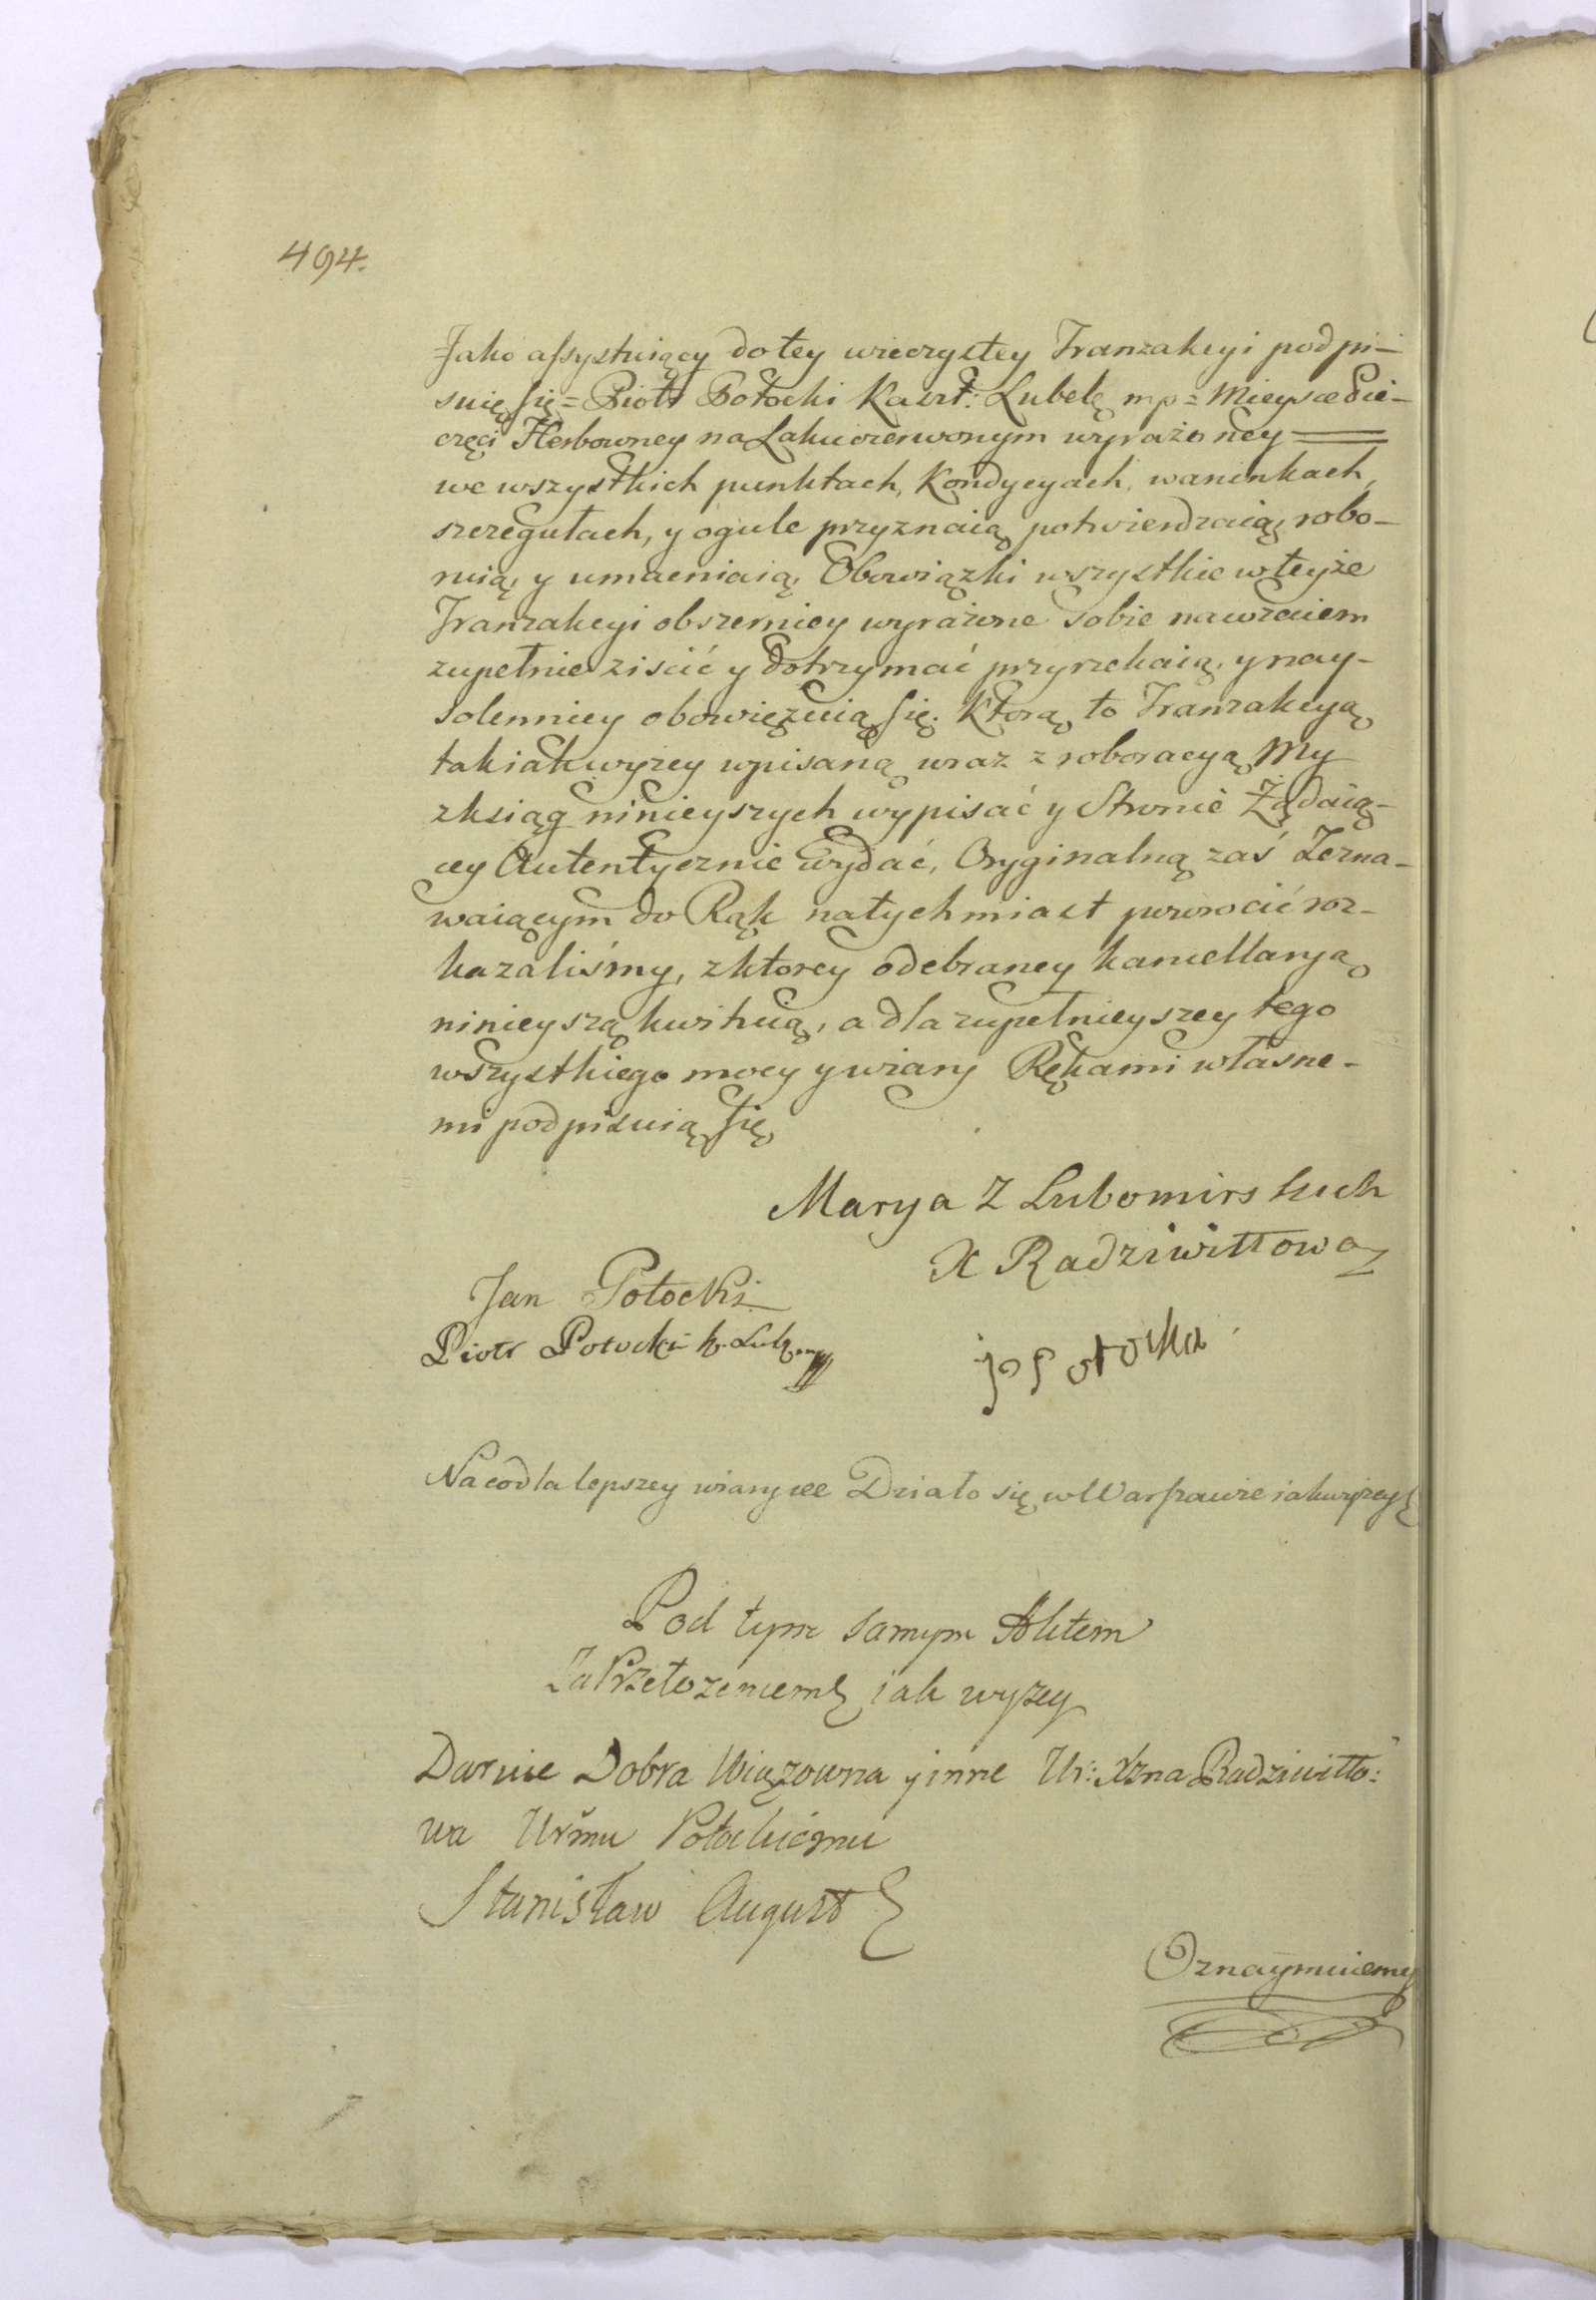 494.
Jako assystuiący do tey wieczystey Tranzakcyi podpi-
suię się = Piotr Potocki Kaszt: Lubelę mp = Mieysce Pie-
częci Herbowney na Laku czerwonym wyrażoney =
we wszystkich punktach, Kondycyach, warunkach,
szczegułach, y ogule przyznaią, potwierdzaią, robo-
ruią, y umacniaią, Obowiązki wszystkie w teyże
Tranzakcyi obszerniey wyrażone sobie nawzaiem
zupełnie ziścić y dotrzymać przyrzekaią, y nay-
solenniey obowięzuią się. Którą to Tranzakcyą
tak iak wyzey wpisaną wraz z roboracyą My
z ksiąg ninieyszych wypisać y Stronie Żądaią-
cey Autentycznie wydać, Oryginalną zaś Zezna-
waiącym do Rąk natychmiast powrocić roz-
kazaliśmy, z ktorey odebraney kancellaryą
ninieyszą kwituią, a dla zupełnieyszey tego
wszystkiego mocy y wiary Rękami własne-
mi podpisuią się
Marya Z Lubomirskich
X Radziwiłłowa
Jan Potocki
Piotr Potocki k. Lub. mp
jpPotocka
Na co dla lepszey wiary ee Działo się w Warszawie iak wyżey
Pod tym samym Aktem
Za Przełożeniem iak wyzey
Daruie Dobra Wiązowna y inne Ur: Xzna Radziwiłło:
wa Urmu Potockiemu
Stanisław August
Oznaymuiemy